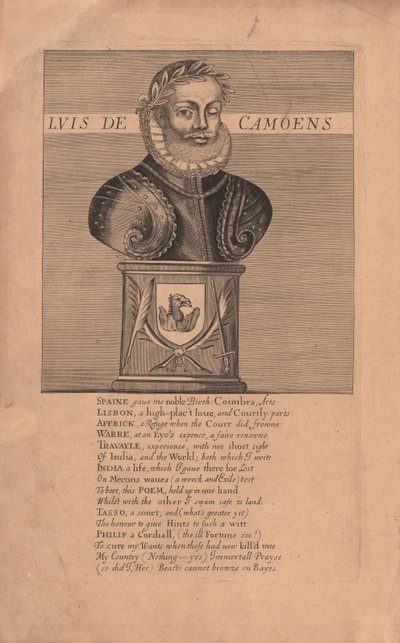 LVIS DE CAMOENS
SPAINE gaue me noble Birth: Coimbra, Arts:
LISBON, a high-plac't loue, and Courtly parts:
AFFRICK, a Refuge when the Court did frowne:
WARRE, at an Eye's expence, a faire renowne:
TRAVAYLE, experience, with noe short sight
Of India, and the World; both which I write
INDIA a life, which I gaue there for Lost
On Mecons waues (a wreck and Exile) tost
To boot, this POEM, held up in one hand
Whilst with the other I swam safe to land:
TASSO, a sonet; and (what's greater yit)
The honour to giue Hints to such a witt
PHILIP a Cordiall, (the ill Fortune see!)
To cure my Wants when those had new kill'd mee
My Country (Nothing—yes) Immortall Prayse
(so did I, Her) Beasts cannot browze on Bayes.